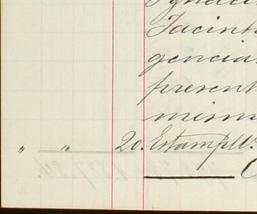 Jacint
gencia
present
mism
" " 20. Estampill